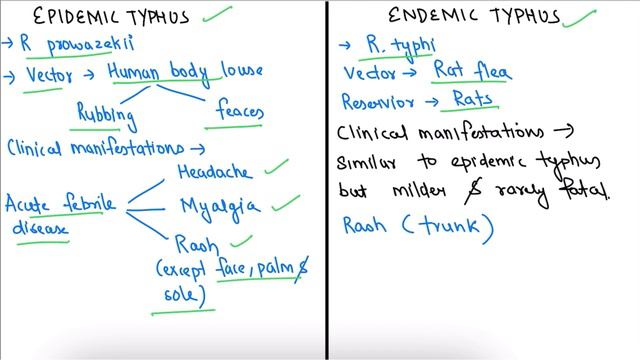 EPIDEMIC TYPHUS ✓
→ R prowazekii
→ Vector → Human body louse
Rubbing feaces
Clinical manifestations →
Headache ✓
Acute febrile
disease
Myalgia ✓
Rash ✓
(except face, palm &
sole)
ENDEMIC TYPHUS ✓
→ R. typhi
Vector → Rat flea
Reservior → Rats
Clinical manifestations →
Similar to epidemic typhus
but milder & rarely fatal.
Rash (trunk)